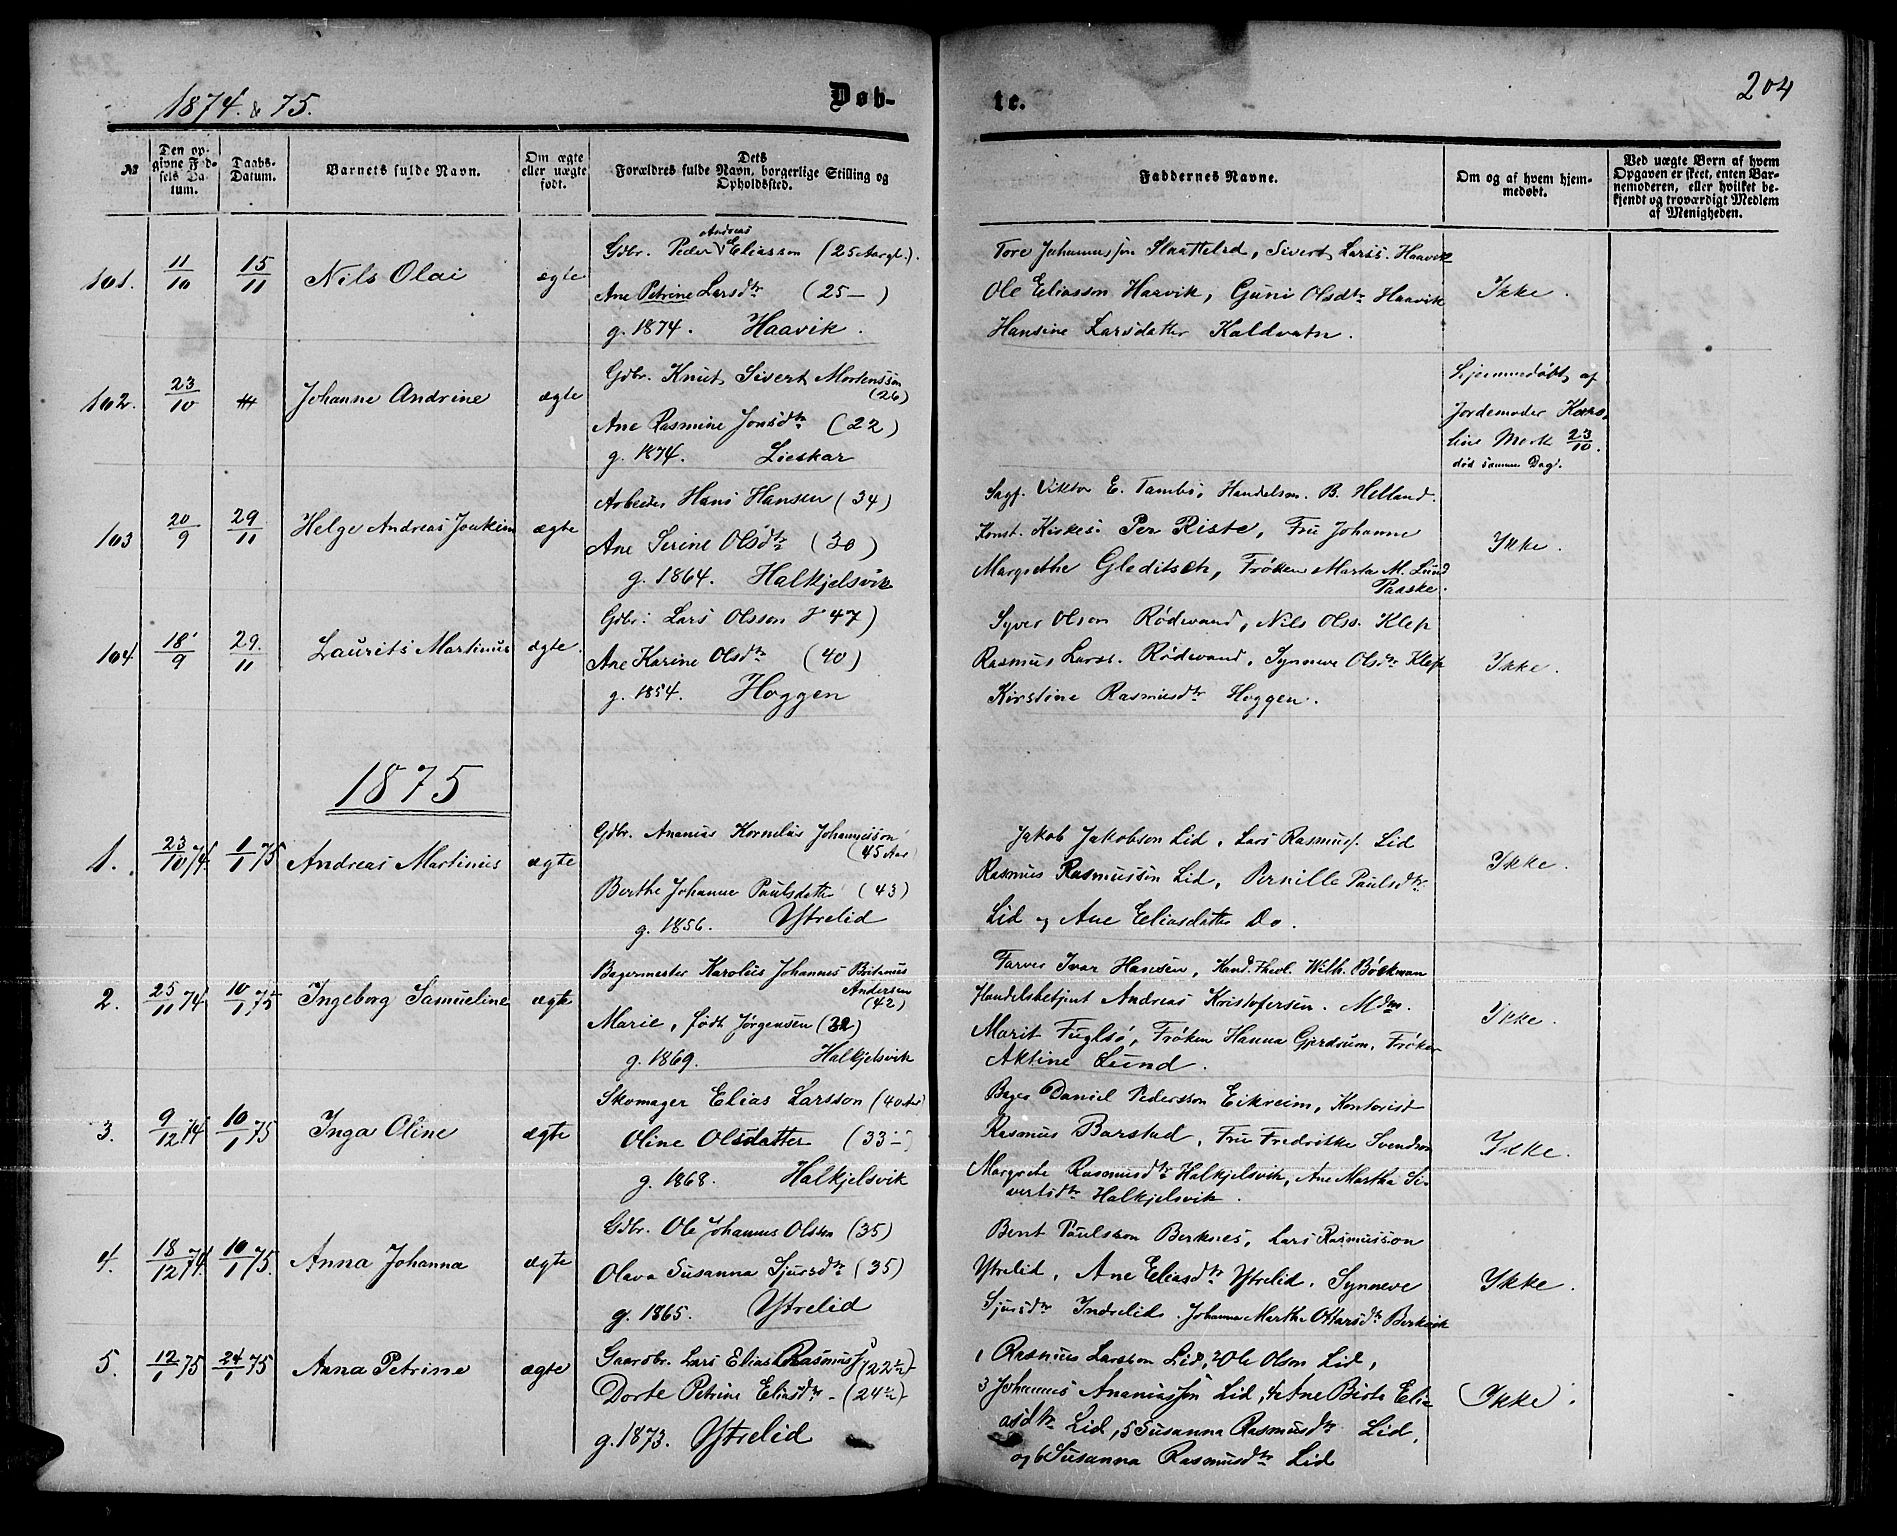 1874 & 75.
Døb-
te.
204
№
Den opgivne Fødsels Datum.
Daabs-Datum.
Barnets fulde Navn.
Om ægte eller uægte født.
Dets Forældres fulde Navn, borgerlige Stilling og Opholdssted.
Faddernes Navne.
Om og af hvem hjemmedøbt.
Ved uægte Børn af hvem Opgaven er skeet, enten Barnemoderen, eller hvilket bekjendt og troværdigt Medlem af Menigheden.
101. 11/10 15/11 Nils Olai ægte
Gdbr. Peder Andreas Eliasson (25 Aargl.).
Ane Petrine Larsdtr (25 — )
g. 1874. Haavik.
Tore Johannesson Slaattelid, Sivert Larss. Haavik
Ole Eliasson Haavik, Guni Olsdtr Haavik
Hansine Larsdatter Kaldvatn.
Ikke.
102. 23/10 Johanne Andrine ægte
Gdbr. Knut Sivert Mortensson (26)
Ane Rasmine Jonsdtr (22)
g. 1874. Lieskar
Hjemmedøbt af
Jordemoder Karo-
line Mork 23/10.
død samme Dag.
103 20/9 29/11 Helge Andreas Joakim ægte
Arbeider Hans Hansen (34)
Ane Serine Olsdtr (30)
g. 1864. Halkjelsvik
Sagf. Viktor E. Tambs, Handelsm. B. Helland.
Konst. Kirkes. Per Riste, Fru Johanne
Margrethe Gleditsch, Frøken Marta M. Lund
Paaske.
Ikke.
104 18/9 29/11 Laurits Martinus ægte.
Gdbr. Lars Olsson (47)
Ane Karine Olsdtr (40)
g. 1854. Hoggen
Syver Olson Rødevand, Nils Olss. Klep
Rasmus Larss. Rødevand, Synneve Olsdtr Klep
Kirstine Rasmusdtr Hoggen.
Ikke.
1875
1. 23/10 74. 1/1 75 Andreas Martinus ægte
Gdbr. Ananias Kornelius Johannesson (45 Aar)
Berthe Johanne Paulsdatter (43)
g. 1856. Ytrelid
Jakob Jakobson Lid, Lars Rasmuss. Lid
Rasmus Rasmussøn Lid, Pernille Paulsdtr
Lid og Ane Eliasdatter Do.
Ikke.
2. 25/11 74 10/1 75 Ingeborg Samueline ægte
Bagermester Karolus Johannes Britanus
Andersen (42)
Marie, født Jørgensen (32)
g. 1869. Halkjelsvik
Farver Ivar Hansen, Kand. Theol. Wilh. Bøckman
Handelsbetjent Andreas Kristofersen. Mdm.
Marit Fuglsø, Frøken Hanna Gjerdrum, Frøken
Aktine Lund.
Ikke.
3. 9/12 74 10/1 75 Inga Oline ægte
Skomager Elias Larsson (40 Aar)
Oline Olsdatter (33 — )
g. 1868. Halkjelsvik
Bager Daniel Pedersson Eikreim, Kontorist
Rasmus Barstad, Fru Fredrikke Svendson
Margrete Rasmusdtr Halkjelsvik, Ane Martha Si-
vertsdtr Halkjelsvik.
Ikke.
4. 18/12 74. 10/1 75. Anna Johanna ægte
Gdbr. Ole Johannes Olsson (35)
Olava Susanna Sjursdtr (35)
g. 1865. Ytrelid
Bent Paulsson Berknes, Lars Rasmusson
Ytrelid, Ane Eliasdtr Ytrelid. Synneve
Sjursdtr Indrelid. Johanna Marthe Ottarsdtr Berknes
Ikke.
5. 12/1 75 24/1 75 Anna Petrine ægte
Gaardbr. Lars Elias Rasmuss. (22½)
Dorte Petrine Eliasdtr - (24½)
g. 1873. Ytrelid
1 Rasmus Larsson Lid, 2 Ole Olson Lid,
3 Johannes Ananiassøn Lid, 4 Ane Birte Eli-
asdtr Lid, 5 Susanna Rasmusdtr Lid,
og 6 Susanna Rasmusdtr Lid
(Ikke).